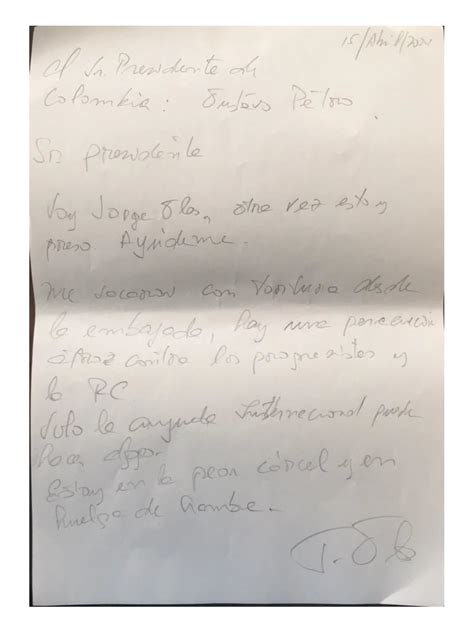 15/Abril/2024
Al Sr. Presidente de
Colombia: Gustavo Petro.
Sr. presidente
Soy Jorge Glas, otra vez estoy
preso. Ayúdeme.
Me sacaron con tortura desde
la embajada, hay una persecución
atroz contra los progresistas y
la RC
Solo la ayuda internacional puede
hacer algo.
Estoy en la peor cárcel y en
huelga de hambre.